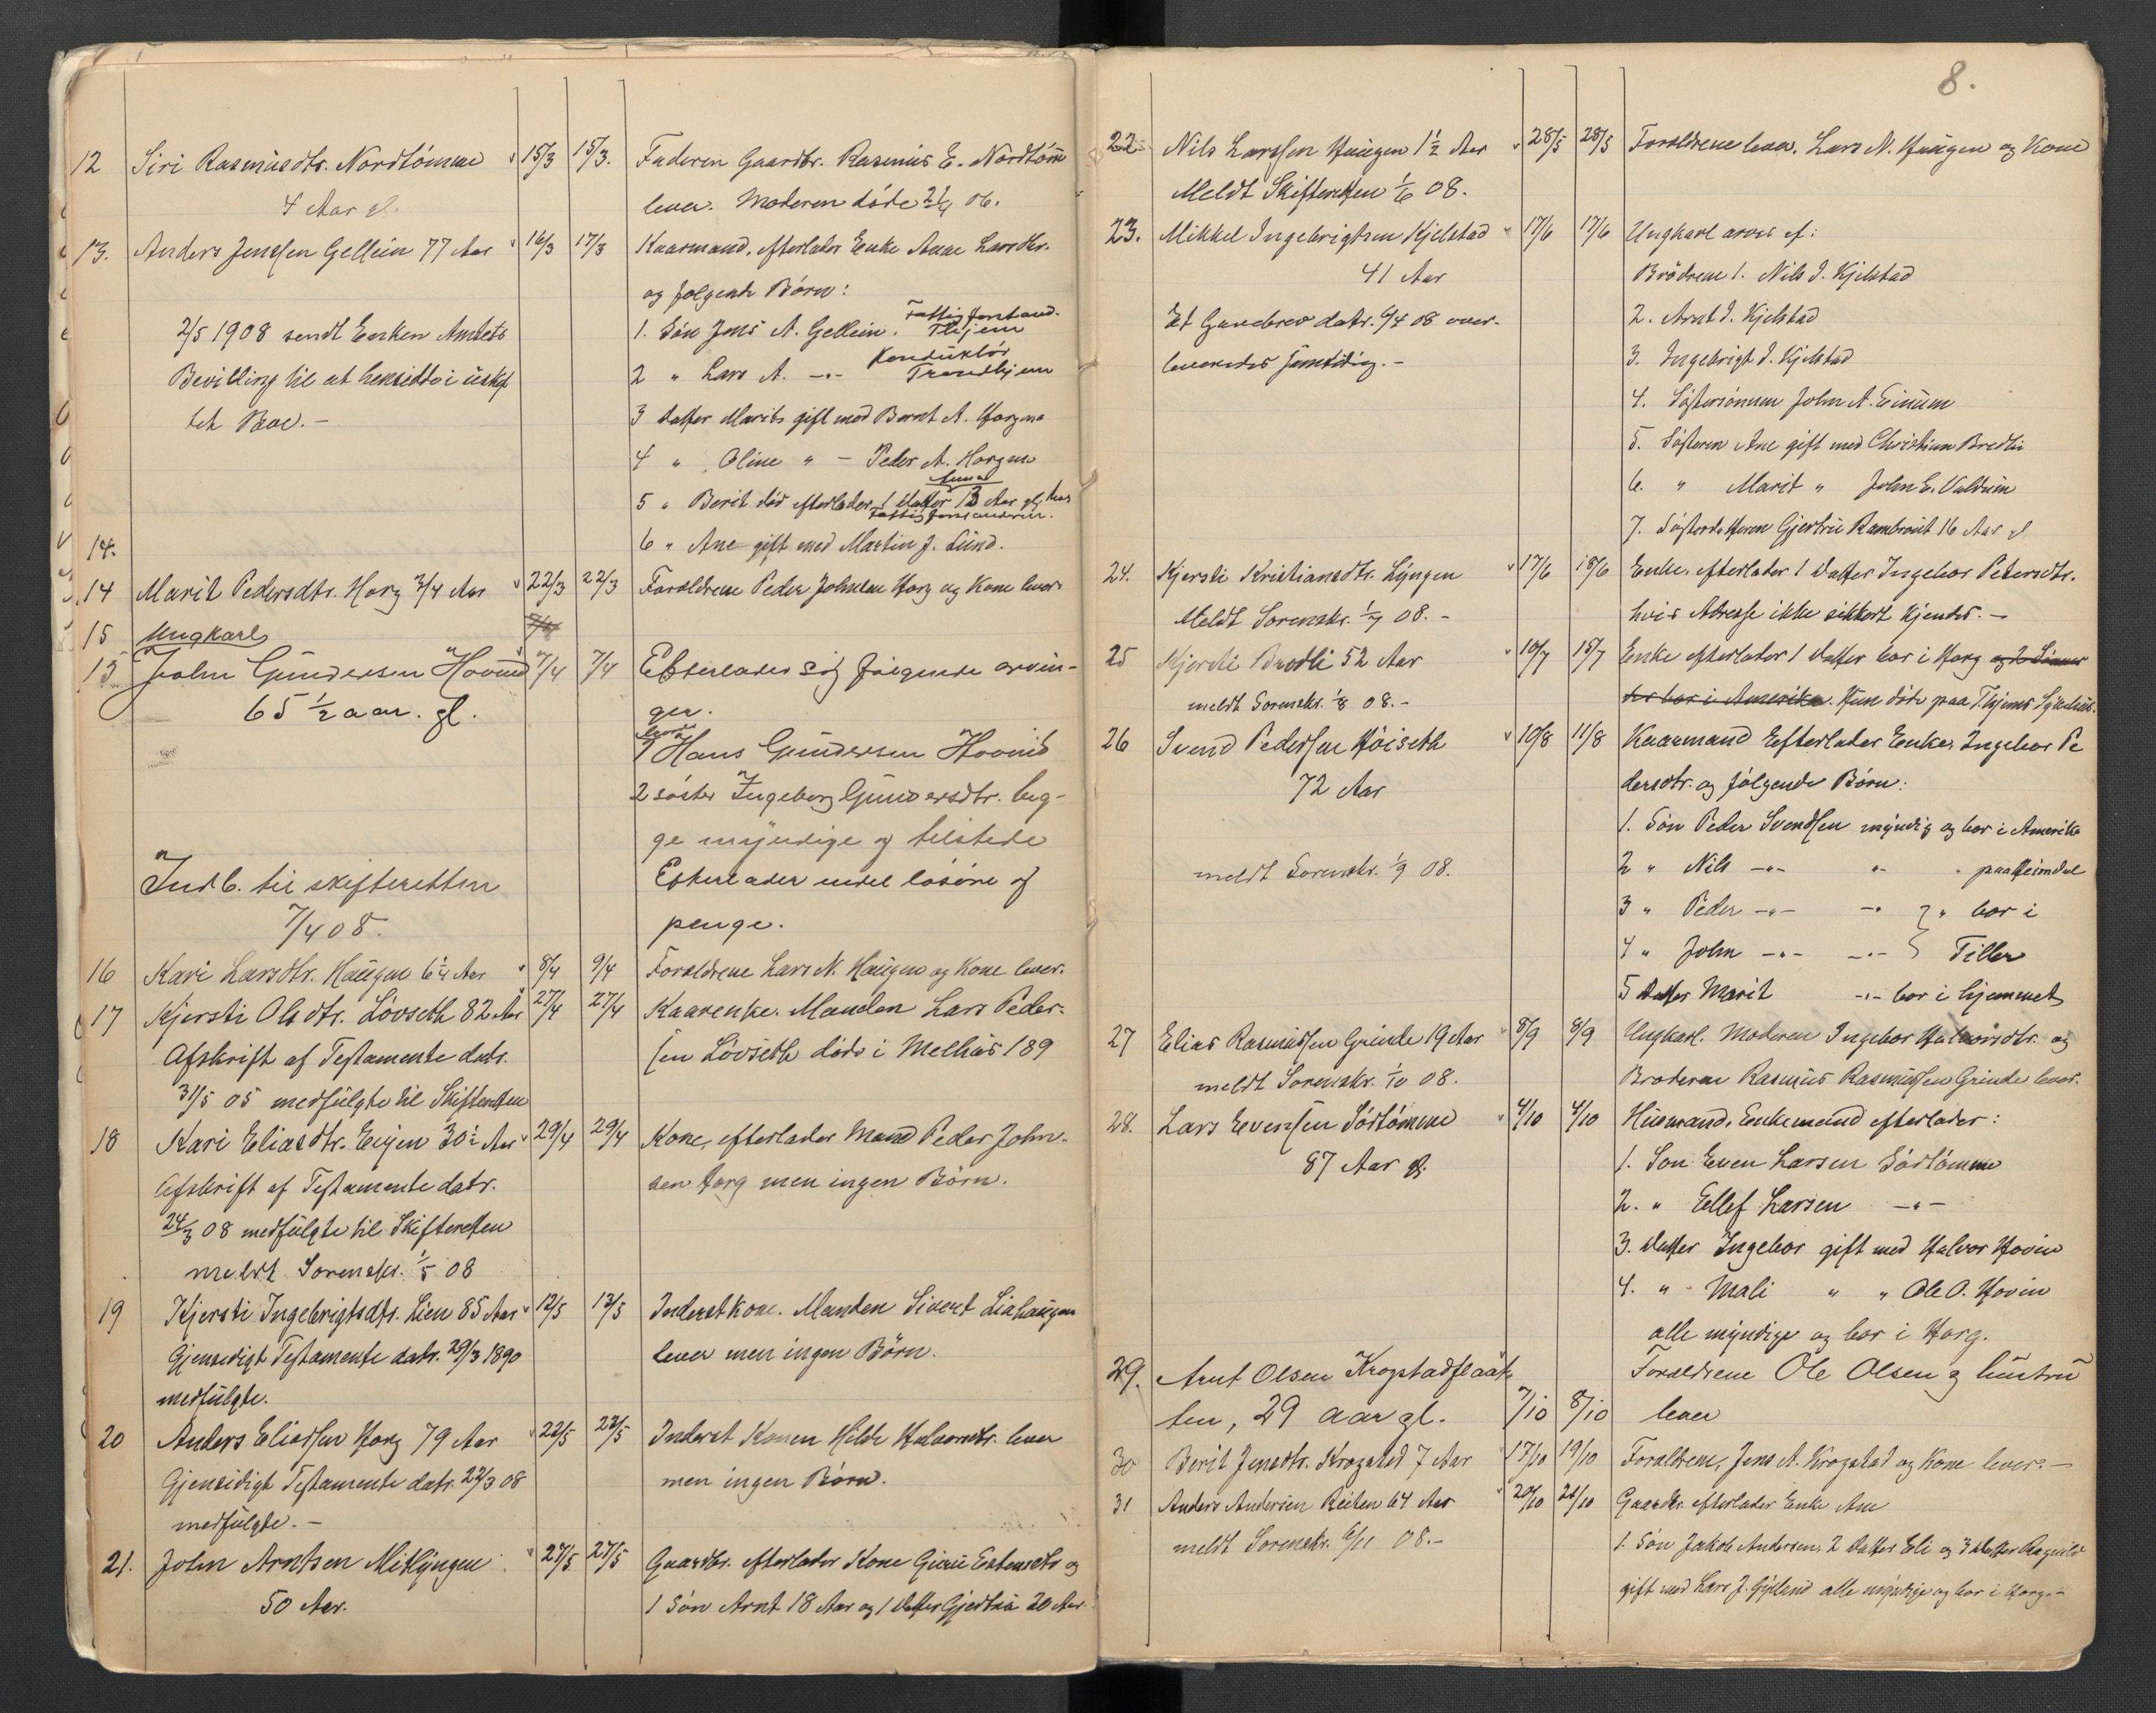 12 Siri Rasmusdtr. Nordtømme 15/3 15/3. Faderen Gaardbr. Rasmus E. Nordtømme
4 Aar gl. lever. Moderen døde 2/4 06.
13. Anders Jenssen Gellein 77 Aar 16/3 17/3 Kaarmand, efterlader Enke Anne Larsdtr.
og følgende Børn:
Fattigforstand.
1. Søn Jens A. Gellein. Thjem
2/5 1908 sendt Enken Amtets
Konduktør
Bevilling til at hensidde i uskif 2 " Lars A. -"- Trondhjem
tet Boe.- 3 Datter Marits gift med Bernt A. Horgmo
4 " Oline " - Peder A. Horgmo
5 " Berit død efterlader 1 Datter 13 Aar gl,
14. 6 " Ane gift med Martin J. Lund.
14 Marit Pedersdtr. Horg 3/4 Aar 22/3 22/3 Forældrene Peder Johnsen Horg og Kone lever
15 Ungkarl
15 John Gundersen Hovind 7/4 7/4 Efterlader sig følgende arvin-
65 1/2 aar. gl. ger.
1 Hans Gundersen Hovind
2 søster Ingeborg Gundersdtr. beg-
ge myndige og tilstede
Indb. til skifteretten Efterlader endel løsøre og
7/4 08. penge.
16 Kari Larsdtr. Haugen 6 1/4 Aar 8/4 9/4 Forældrene Lars N. Haugen og Kone lever.
17 Kjersti Olsdtr. Løvseth 82 Aar 27/4 27/4 Kaarenke. Manden Lars Peder-
Afskrift af Testamente datr. sen Løvseth døde i Melhus 189
31/5 05 medfulgte til Skifteretten
18 Kari Eliasdtr. Eigen 30 1/2 Aar 29/4 29/4 Kone, efterlader Mand Peder John-
Afskrift af Testamente datr. sen Horg men ingen Børn.
24/3 08 medfulgte til Skifteretten
meldt Sorenskr. 1/5 08
19 Kjersti Ingebrigtsdtr. Lien 85 Aar 12/5 13/5 Inderstkone. Manden Sivert Liahaugen
Gjensidigt Testamente datr. 29/3 1890 lever men ingen Børn.
medfulgte.
20 Anders Eliassen Horg 79 Aar 22/5 23/5 Inderst Konen Hilde Halvorsdtr. lever
Gjensidigt Testamente datr. 22/3 08 men ingen Børn.
medfulgte.-
21. John Arntsen Mitlyngen 27/5 27/5 Gaardbr. efterlader Kone Guru Estensdtr og
50 Aar. 1 Søn Arnt 18 Aar og 1 Datter Gjertru 20 Aar.
8.
22. Nils Larssen Haugen 1 1/2 Aar 28/5 28/5 Forældrene lever. Lars N. Haugen og Kone
Meldt Skifteretten 1/6 08.
23. Mikkel Ingebrigtsen Kjelstad 17/6 17/6 Ungkarl arves af:
41 Aar Brødrene 1. Nils I. Kjelstad
Et Gavebrev datr. 6/4 08 over- 2. Arnt I. Kjelstad
leveredes samtidig.- 3. Ingebrigt I. Kjelstad
4. Søstersønnen John A. Einum
5. Søsteren Ane gift med Christian Bredli
6. " Marit " John E. Valdum
7. Søsterdatteren Gjertru Rambraut 16 Aar gl
24. Kjersti Kristiansdtr. Lyngen 17/6 18/6 Enke, efterlader 1 Datter Ingebor Petersdtr.
Meldt Sorenskr. 1/7 08.- hvis Adresse ikke sikkert kjendes.-
25 Kjersti Brødli 52 Aar 10/7 15/7 Enke efterlader 1 Datter bor i Horg og 2 Sønner
meldt Sorenskr. 1/8 08.- der bor i Amerika. Hun døde paa T.hjems Sykehus.
26 Svend Pedersen Høiseth 10/8 11/8 Kaarmand Efterlader Enke Ingebor Pe
72 Aar dersdtr. og følgende Børn:
1. Søn Peder Svendsen myndig og bor i Amerika
meldt Sorenskr. 1/9 08. 2 " Nils -"- "- " paa Heimdal
3 " Peder -"- -" } " bor i
4 " John -"- -"- } Tiller
5 Datter Marit -"- bor i hjemmet
27 Elias Rasmussen Grinde 19 Aar 8/9 8/9 Ungkarl. Moderen Ingebor Halvorsdtr. og
meldt Sorenskr. 1/10 08. Broderen Rasmus Rasmussen Grinde lever.
28. Lars Evensen Sørtømme 4/10 4/10 Husmand, Enkemand efterlader:
87 Aar gl. 1. Søn Even Larsen Sørtømme
2. " Ellef Larsen -"-
3. Datter Ingebor gift med Halvor Hovin
4. " Mali " " Ole O. Hovin
alle myndige og bor i Horg.
29. Arnt Olsen Krogstadflaat- Forældrene Ole Olsen og hustru
ten, 29 aar gl. 7/10 8/10 lever
30 Berit Jensdtr. Krogstad 7 Aar 17/10 19/10 Forældrene, Jens A. Krogstad og Kone lever.-
31 Anders Andersen Reiten 64 Aar 20/10 21/10 Gaardbr. efterlader Enke Ane
meldt Sorenskr. 6/11 08.- 1. Søn Jakob Andersen, 2 Datter Eli og 3 Datter Ragnild
gift med Lars J. Gylland alle myndige og bor i Horg.-